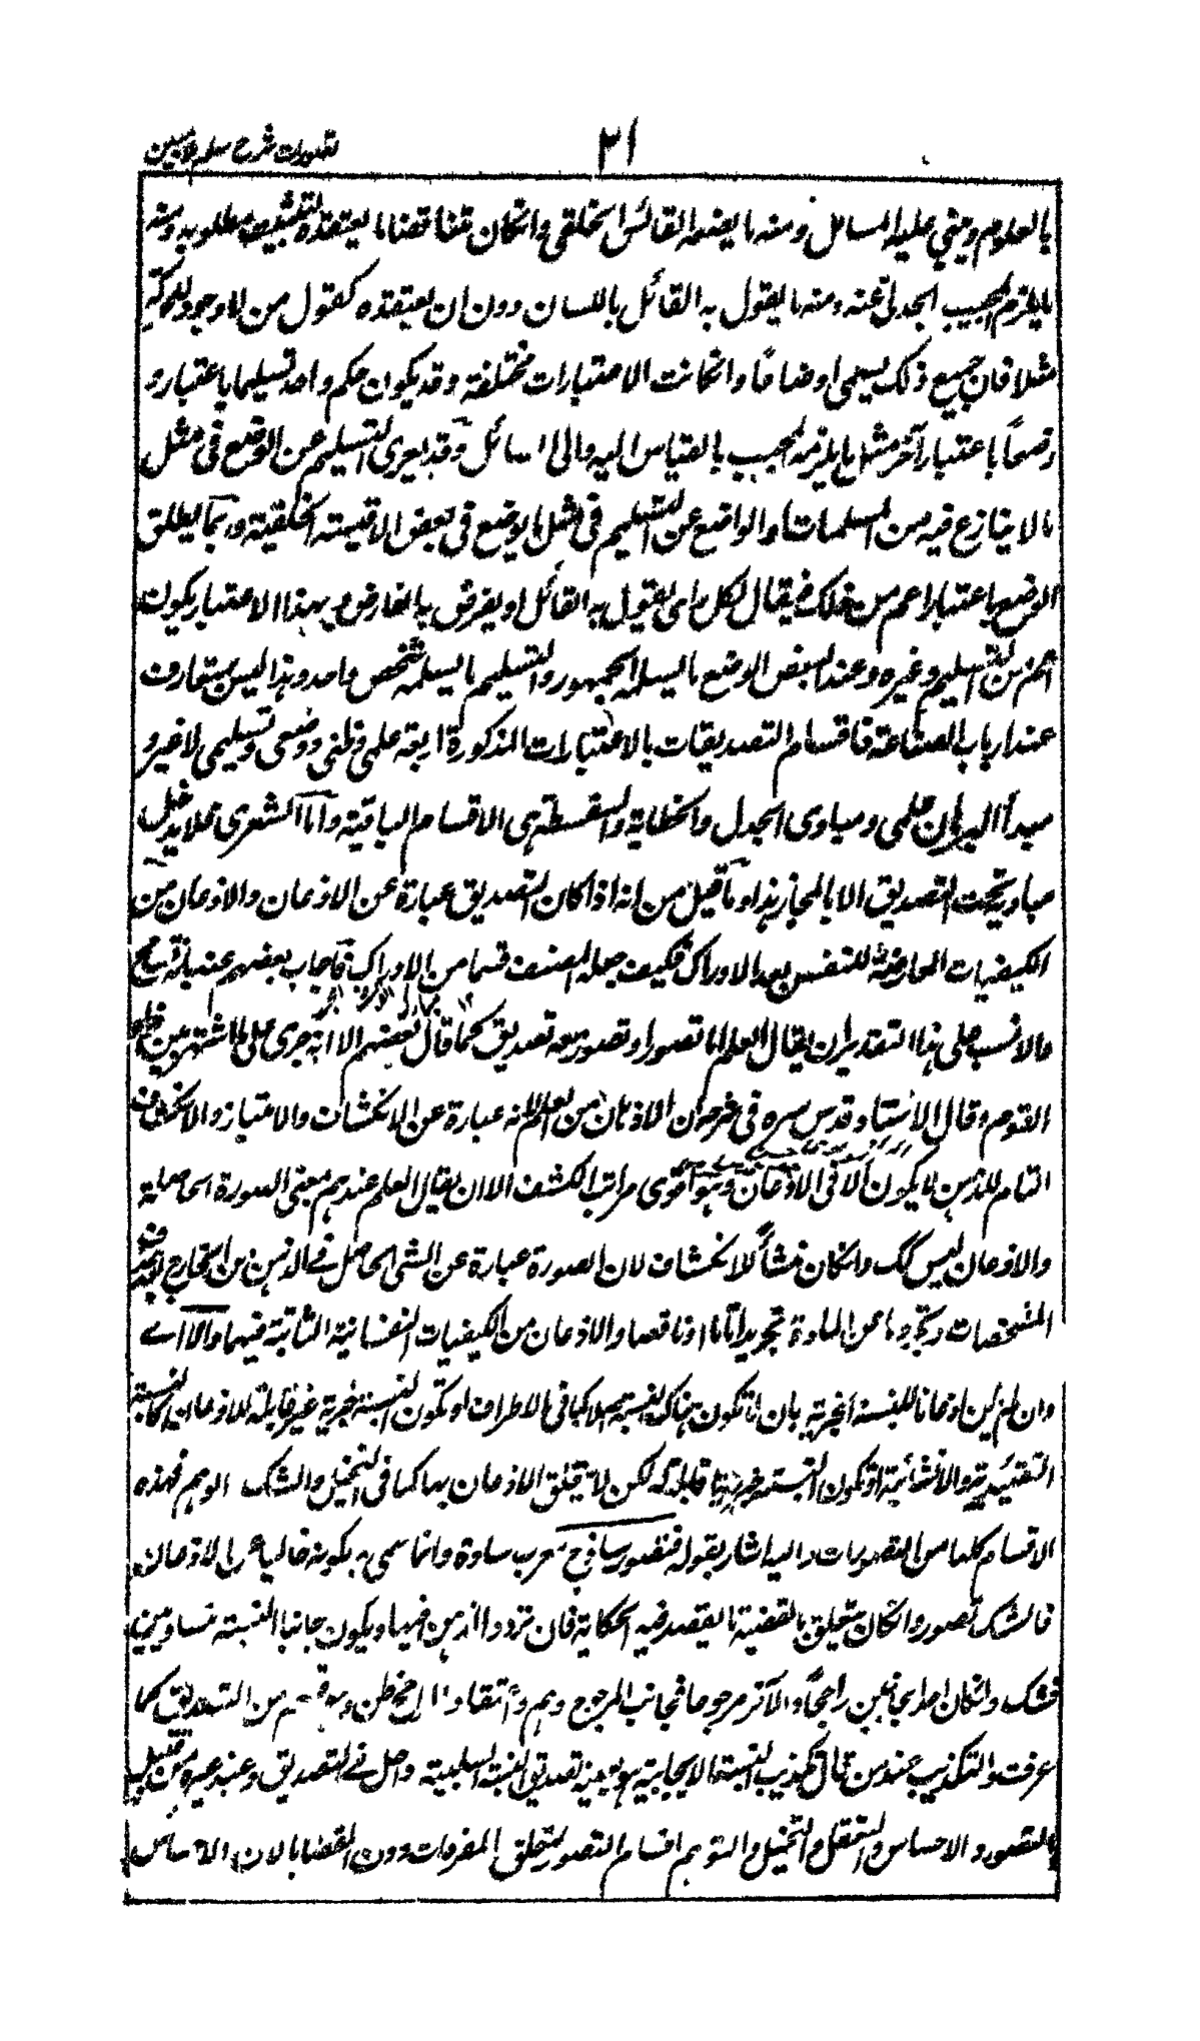 تصورات شرح سلم ملا مبين
٢١
بالعلوم ويبني عليه المسائل ومنه ما يضعه القائس الخلفي وانكان مناقضا لما يعتقده ليثبت به مطلوبه ومنه
ما يلزم المجيب الجدلي عنه ومنه ما يقول به القائل باللسان دون ان يعتقده كقول من لا وجود للحركة
مثلا فان جميع ذلك يسمى اوضاعًا وانكانت الاعتبارات مختلفة وقد يكون حكم واحد تسليما باعتبار و
وضعاً باعتبار آخر مثل ما يلتزمه المجيب بالقياس اليه والى السائل وقد يعرى التسليم عن الوضع في مثل
ما لا ينازع فيه من المسلمات او الوضع عن التسليم في مثل ما يوضع في بعض الاقيسة الخلفية وربما يطلق
الوضع باعتبار اعم من ذلك فيقال لكل راى يقول به القائل او يفرض به الفارض وبهذا الاعتبار يكون
اعم من التسليم وغيره وعند البعض الوضع ما يسلمه الجمهور والتسليم ما يسلمه شخص واحد وهذا ليس بمتعارف
عند ارباب الصناعة فاقسام التصديقات بالاعتبارات المذكورة اربعة علمي وظني ووضعي وتسليمي لا غير و
مبدأ البرهان علمي ومبادى الجدل والخطابة والسفسطة هي الاقسام الباقية واما الشعرى فلا يدخل
مباديه تحت التصديق الا بالمجاز هذا وما قيل من انه اذا كان التصديق عبارة عن الاذعان والاذعان من
الكيفيات العارضة للنفس بعد الادراك فكيف جعله المصنف قسما من الادراك فاجاب بعضهم عنه بانه تسامح
والانسب على هذا التقدير ان يقال العلم اما تصور او تصور معه تصديق كما قال بعضهم الا انه جرى على ما اشتهر بين
القوم وقال الاستاد قدس سره في شرحه ان الاذعان من العلم لانه عبارة عن الانكشاف والامتياز والانكشاف
التام للذهن لا يكون الا في الاذعان وهو اقوى مراتب الكشف الا ان يقال العلم عندهم بمعنى الصورة الحاصلة
والاذعان ليس كك وانكان منشأً للانكشاف لان الصورة عبارة عن الشي الحاصل في الذهن من الخارج بعد
المشخصات وتجردها عن المادة تجريدا تاما او ناقصا والاذعان من الكيفيات النفسانية الثابتة فيها والا اے
وان لم يكن اذعانا للنسبة الخبرية بان لا تكون هناك نسبة اصلا كما في الاطراف او تكون النسبة غير خبرية غير قابلة للاذعان كالنسبة
التقييدية والانشائية او تكون النسبة خبرية قابلة له لكن لا يتعلق الاذعان بها كما في التخييل والشك والوهم فهذه
الاقسام كلها من التصورات واليه اشار بقوله فتصور ساذج معرب ساده وانما سمي به لكونه خاليا عن الاذعان
فالشك تصور وانكان متعلق بالقضية ما يقصد فيه الحكاية فان تردد الذهن فيها ويكون جانبا النسبة متساويين
فشك وانكان احد الجانبين راجحًا والآخر مرجوحا فجانب المرجوح وهم واعتقاد الراجح ظن وهو قسم من التصديق كما
عرفت والتكذيب عند من قال تكذيب النسبة الايجابية هو بعينه تصديق النسبة السلبية داخل في التصديق وعند غيره من قبيل
التصور والاحساس والتعقل والتخييل والتوهم اقسام التصور يتعلق بالمفردات دون القضايا لان الاحساس